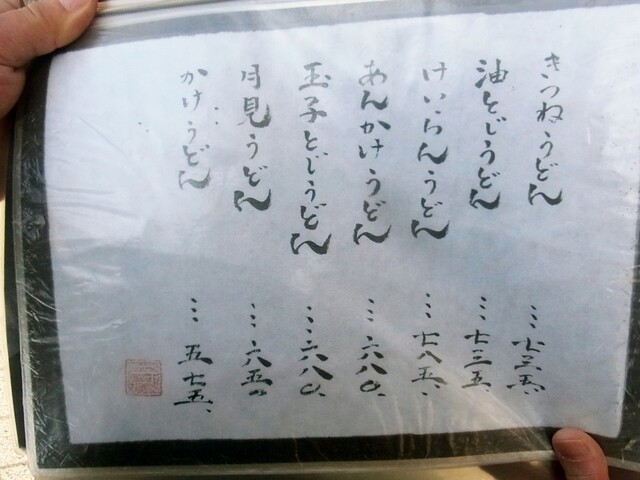 きつねうどん ……七三五、
油とじうどん ……七三五、
けいらんうどん ……七八五、
あんかけうどん ……六八〇、
玉子とじうどん ……六八〇、
月見うどん ……六五〇
かけうどん ……五七五、